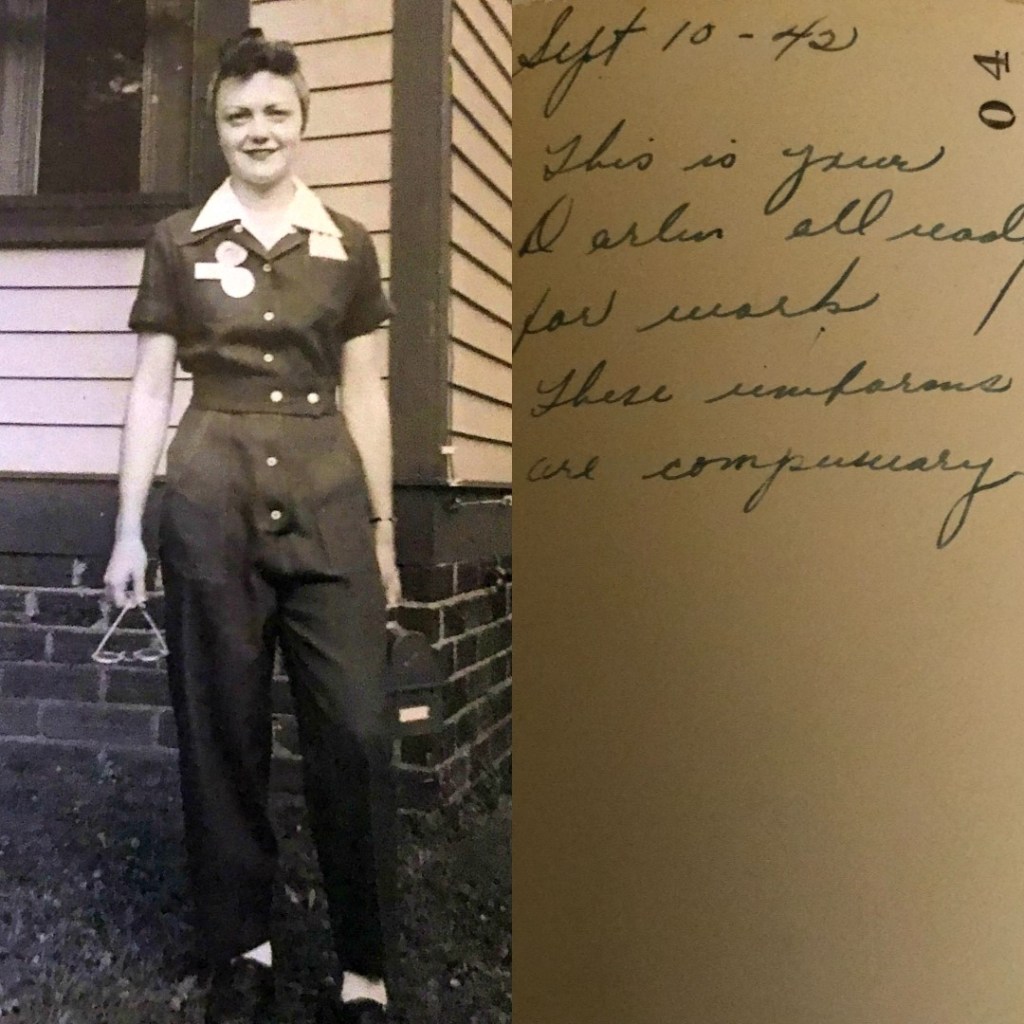 Sept 10 - 42
04
This is your
Darlin all read
for work
These uniforms
are compumary